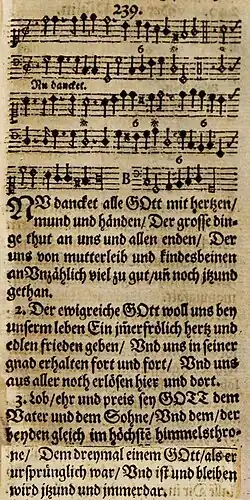 239.
6 *
Nu dancket.
6
* 6 * 6
6
B
NV dancket alle GOtt mit hertzen/
mund und händen/ Der grosse din-
ge thut an uns und allen enden/ Der
uns von mutterleib und kindesbeinen
an Vnzählich viel zu gut/ uñ noch jtzund
gethan.
2. Der ewigreiche GOtt woll uns bey
unserm leben Ein jm̃erfrölich hertz und
edlen frieden geben/ Vnd uns in seiner
gnad erhalten fort und fort/ Vnd uns
aus aller noth erlösen hier und dort.
3. Lob/ ehr und preis sey GOTT dem
Vater und dem Sohne/ Vnd dem/ der
beyden gleich im höchstẽ himmelsthro-
ne/ Dem dreymal einem GOtt/ als er
ursprünglich war/ Vnd ist und bleiben
wird jtzund und jmmerdar.